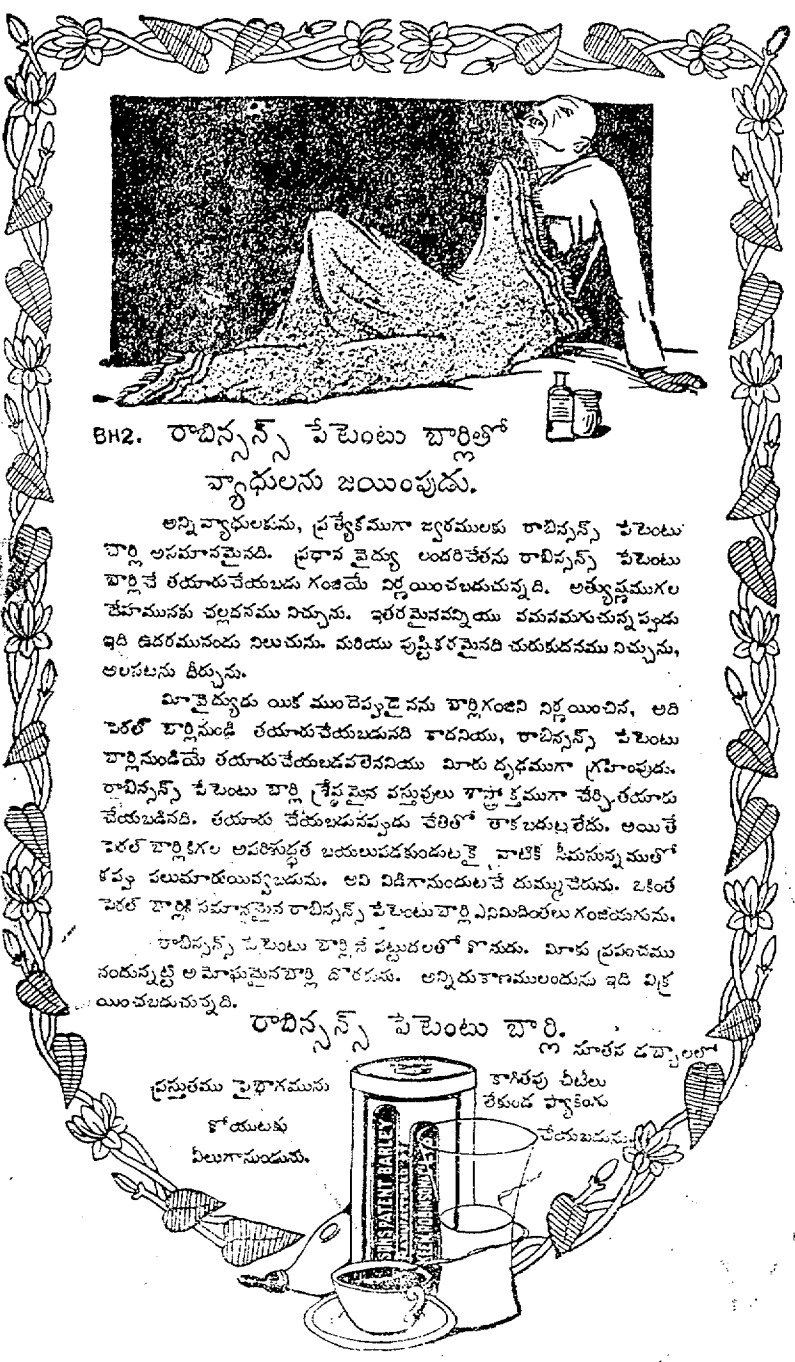 BH2. రాబిన్సన్స్ పేటెంటు బార్లితో
వ్యాధులను జయింపుడు.
అన్నివ్యాధులకును, ప్రత్యేకముగా జ్వరములకు రాబిన్సన్స్ పేటెంటు
బార్లి అసమానమైనది. ప్రధాన వైద్యు లందరిచేతను రాబిన్సన్స్ పేటెంటు
బార్లిచే తయారుచేయబడు గంజియే నిర్ణయించబడుచున్నది. అత్యుష్ణముగల
దేహమునకు చల్లదనము నిచ్చును. ఇతరమైనవన్నియు వమనమగుచున్నప్పుడు
ఇది ఉదరమునందు నిలుచును. మరియు పుష్టికరమైనది చురుకుదనము నిచ్చును,
అలసటను తీర్చును.
మీవైద్యుడు యిక ముందెప్పుడైనను బార్లిగంజిని నిర్ణయించిన, అది
పెరల్ బార్లినుండి తయారుచేయబడునది కాదనియు, రాబిన్సన్స్ పేటెంటు
బార్లినుండియే తయారుచేయబడవలెననియు మీరు దృఢముగా గ్రహింపుడు.
రాబిన్సన్స్ పేటెంటు బార్లి శ్రేష్ఠమైన వస్తువులు శాస్త్రోక్తముగా చేర్చి తయారు
చేయబడినది. తయారు చేయబడునప్పుడు చేతితో తాకబడుటలేదు. అయితే
పెరల్ బార్లికిగల అపరిశుద్ధత బయలుపడకుండుటకై వాటికి సీమసున్నముతో
కప్పు పలుమారుయివ్వబడును. అవి విడిగానుండుటచే దుమ్ముచేరును. ఒకింత
పెరల్ బార్లికి సమానమైన రాబిన్సన్స్ పేటెంటుబార్లి ఎనిమిదింతలు గంజియగును.
రాబిన్సన్స్ పేటెంటు బార్లినే పట్టుదలతో కొనుడు. మీకు ప్రపంచము
నందున్నట్టి అమోఘమైనబార్లి దొరకును. అన్నిదుకాణములందును ఇది విక్ర
యించబడుచున్నది.
రాబిన్సన్స్ పేటెంటు బార్లి.
నూతన డబ్బాలలో
ప్రస్తుతము పైభాగమును
కోయుటకు
వీలుగానుండును.
కాగితపు చీటీలు
లేకుండ ప్యాకింగు
చేయబడును.
PATENT BARLEY